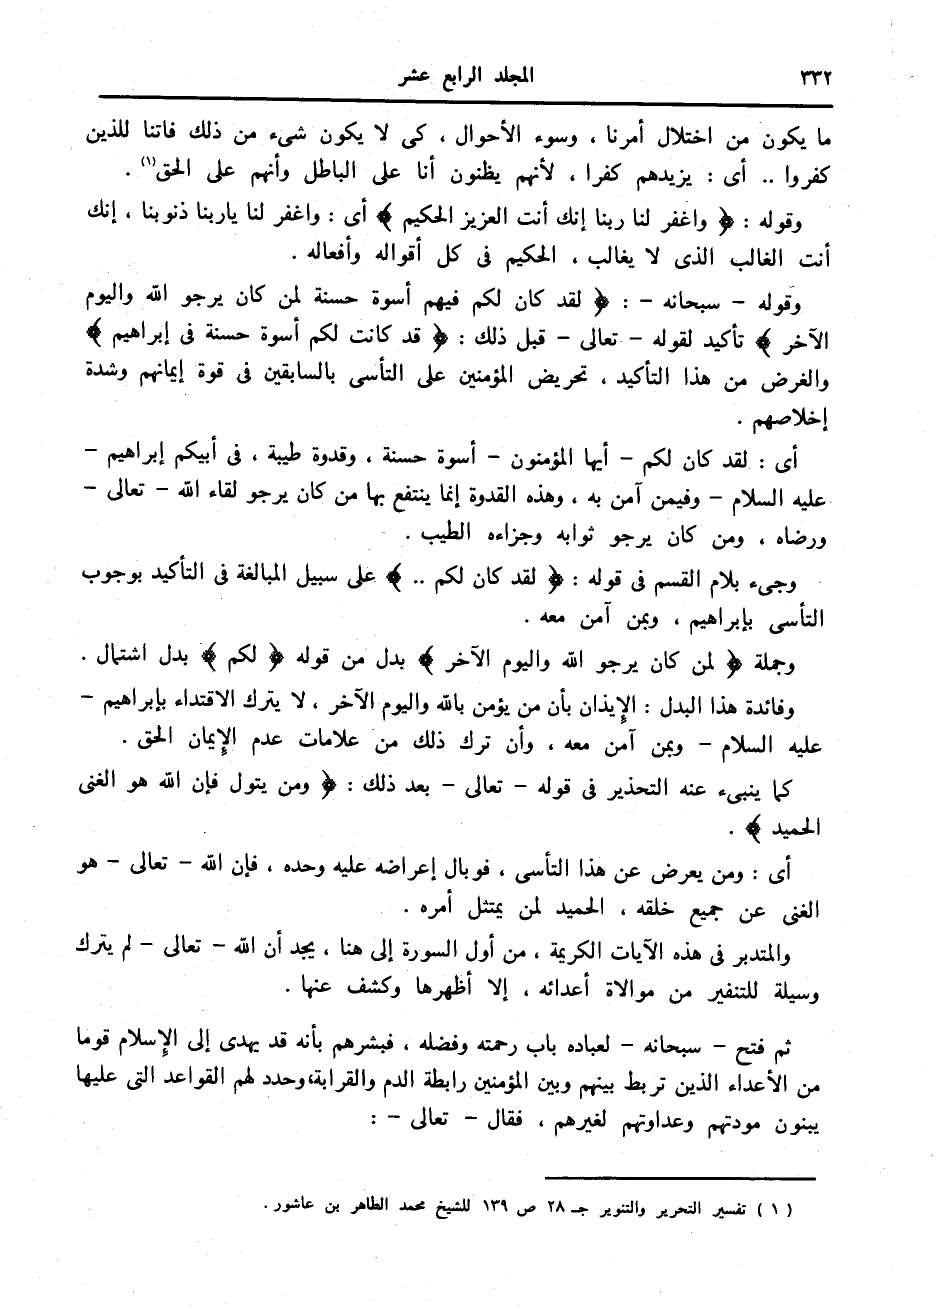 ٣٣٢
المجلد الرابع عشر
ما يكون من اختلال أمرنا ، وسوء الأحوال ، كى لا يكون شىء من ذلك فاتنا للذين
كفروا .. أى : يزيدهم كفرا ، لأنهم يظنون أنا على الباطل وأنهم على الحق(١) .
وقوله : ﴿ واغفر لنا ربنا إنك أنت العزيز الحكيم ﴾ أى : واغفر لنا ياربنا ذنوبنا ، إنك
أنت الغالب الذى لا يغالب ، الحكيم فى كل أقواله وأفعاله .
وقوله – سبحانه – : ﴿ لقد كان لكم فيهم أسوة حسنة لمن كان يرجو الله واليوم
الآخر ﴾ تأكيد لقوله – تعالى – قبل ذلك : ﴿ قد كانت لكم أسوة حسنة فى إبراهيم ﴾
والغرض من هذا التأكيد ، تحريض المؤمنين على التأسى بالسابقين فى قوة إيمانهم وشدة
إخلاصهم .
أى : لقد كان لكم – أيها المؤمنون – أسوة حسنة ، وقدوة طيبة ، فى أبيكم إبراهيم –
عليه السلام – وفيمن آمن به ، وهذه القدوة إنما ينتفع بها من كان يرجو لقاء الله – تعالى –
ورضاه ، ومن كان يرجو ثوابه وجزاءه الطيب .
وجىء بلام القسم فى قوله : ﴿ لقد كان لكم .. ﴾ على سبيل المبالغة فى التأكيد بوجوب
التأسى بإبراهيم ، وبمن آمن معه .
وجملة ﴿ لمن كان يرجو الله واليوم الآخر ﴾ بدل من قوله ﴿ لكم ﴾ بدل اشتمال .
وفائدة هذا البدل : الإيذان بأن من يؤمن بالله واليوم الآخر ، لا يترك الاقتداء بإبراهيم –
عليه السلام – وبمن آمن معه ، وأن ترك ذلك من علامات عدم الإيمان الحق .
كما ينبىء عنه التحذير فى قوله – تعالى – بعد ذلك : ﴿ ومن يتول فإن الله هو الغنى
الحميد ﴾ .
أى : ومن يعرض عن هذا التأسى ، فوبال إعراضه عليه وحده ، فإن الله – تعالى – هو
الغنى عن جميع خلقه ، الحميد لمن يمتثل أمره .
والمتدبر فى هذه الآيات الكريمة ، من أول السورة إلى هنا ، يجد أن الله – تعالى – لم يترك
وسيلة للتنفير من موالاة أعدائه ، إلا أظهرها وكشف عنها .
ثم فتح – سبحانه – لعباده باب رحمته وفضله ، فبشرهم بأنه قد يهدى إلى الإسلام قوما
من الأعداء الذين تربط بينهم وبين المؤمنين رابطة الدم والقرابة،وحدد لهم القواعد التى عليها
يبنون مودتهم وعداوتهم لغيرهم ، فقال – تعالى – :
( ١ ) تفسير التحرير والتنوير جـ ٢٨ ص ١٣٩ للشيخ محمد الطاهر بن عاشور .